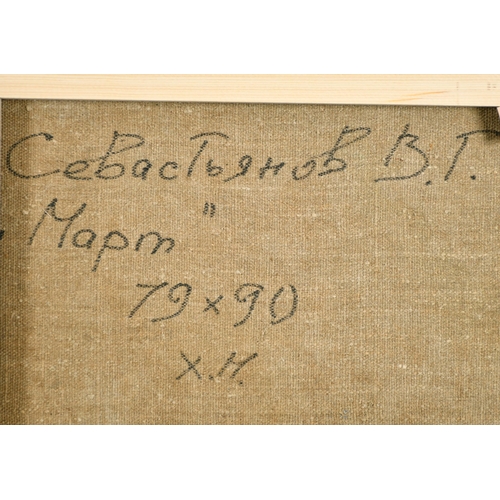 Севастьянов В.Г.
„Март"
79×90
Х.Н.